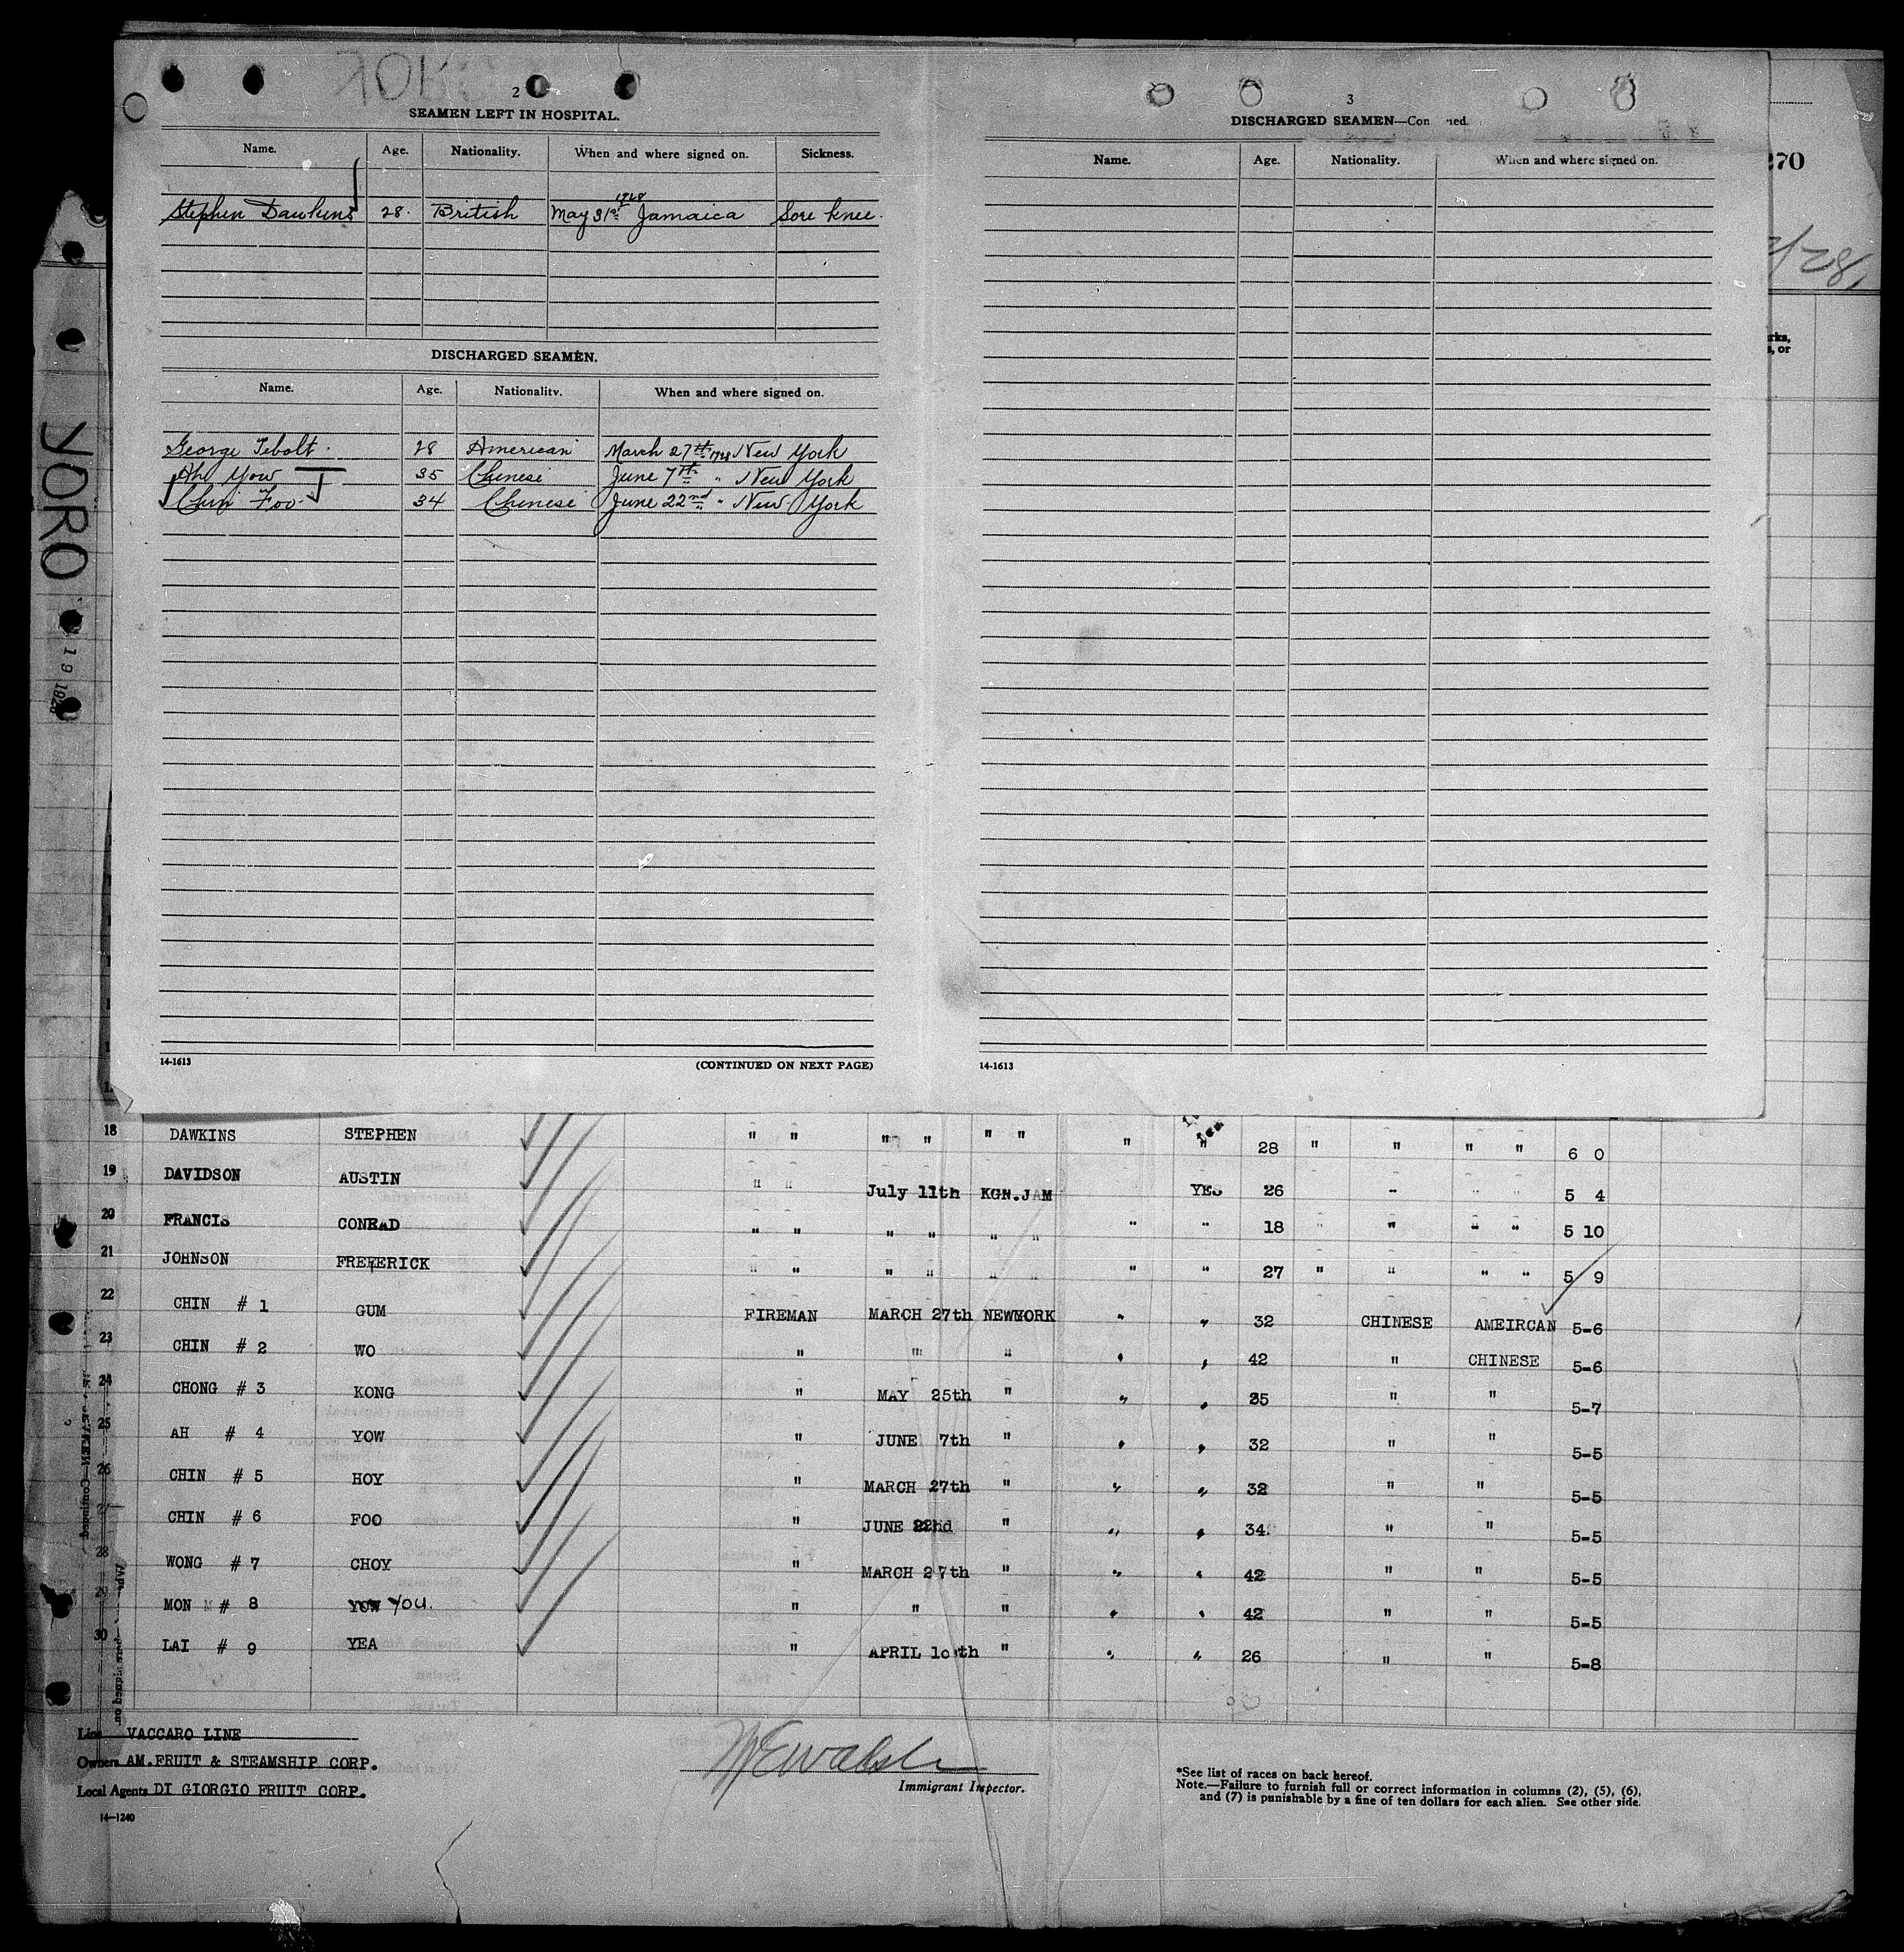 2
SEAMEN LEFT IN HOSPITAL.
Name. Age. Nationality. When and where signed on. Sickness.
Stephen Dawkins 28. British May 31st 1928 Jamaica Sore knee.
DISCHARGED SEAMEN.
Name. Age. Nationality. When and where signed on.
George Tebolt. 28 American March 27th 1928 New York
Ah Yow 35 Chinese June 7th " New York
Chin Foo. 34 Chinese June 22nd " New York
14-1613 (CONTINUED ON NEXT PAGE)
3
DISCHARGED SEAMEN—Con ued.
Name. Age. Nationality. When and where signed on.
14-1613
270
/28,
rks,
s, or
YORO
19 1928
18 DAWKINS STEPHEN " " " " " " " " 28 " " " " 6 0
19 DAVIDSON AUSTIN " " July 11th KGN.JAM YES 26 " " " 5 4
20 FRANCIS CONRAD " " " " " " " " 18 " " " " 5 10
21 JOHNSON FREDERICK " " " " " " " " 27 " " " " 5 9
22 CHIN # 1 GUM FIREMAN MARCH 27th NEWYORK " " 32 CHINESE AMEIRCAN 5-6
23 CHIN # 2 WO " " " " " 42 " CHINESE 5-6
24 CHONG # 3 KONG " MAY 25th " " " 35 " " 5-7
25 AH # 4 YOW " JUNE 7th " " " 32 " " 5-5
26 CHIN # 5 HOY " MARCH 27th " " " 32 " " 5-5
27 CHIN # 6 FOO " JUNE 22nd " " " 34 " " 5-5
28 WONG # 7 CHOY " MARCH 27th " " " 42 " " 5-5
29 MON # 8 YOW YOU. " " " " " 42 " " 5-5
30 LAI # 9 YEA " APRIL 10th " " " 26 " " 5-8
Line VACCARO LINE
Owners AM.FRUIT & STEAMSHIP CORP.
Local Agents DI GIORGIO FRUIT CORP.
14-1240
W E Walsh
Immigrant Inspector.
*See list of races on back hereof.
Note.—Failure to furnish full or correct information in columns (2), (5), (6),
and (7) is punishable by a fine of ten dollars for each alien. See other side.